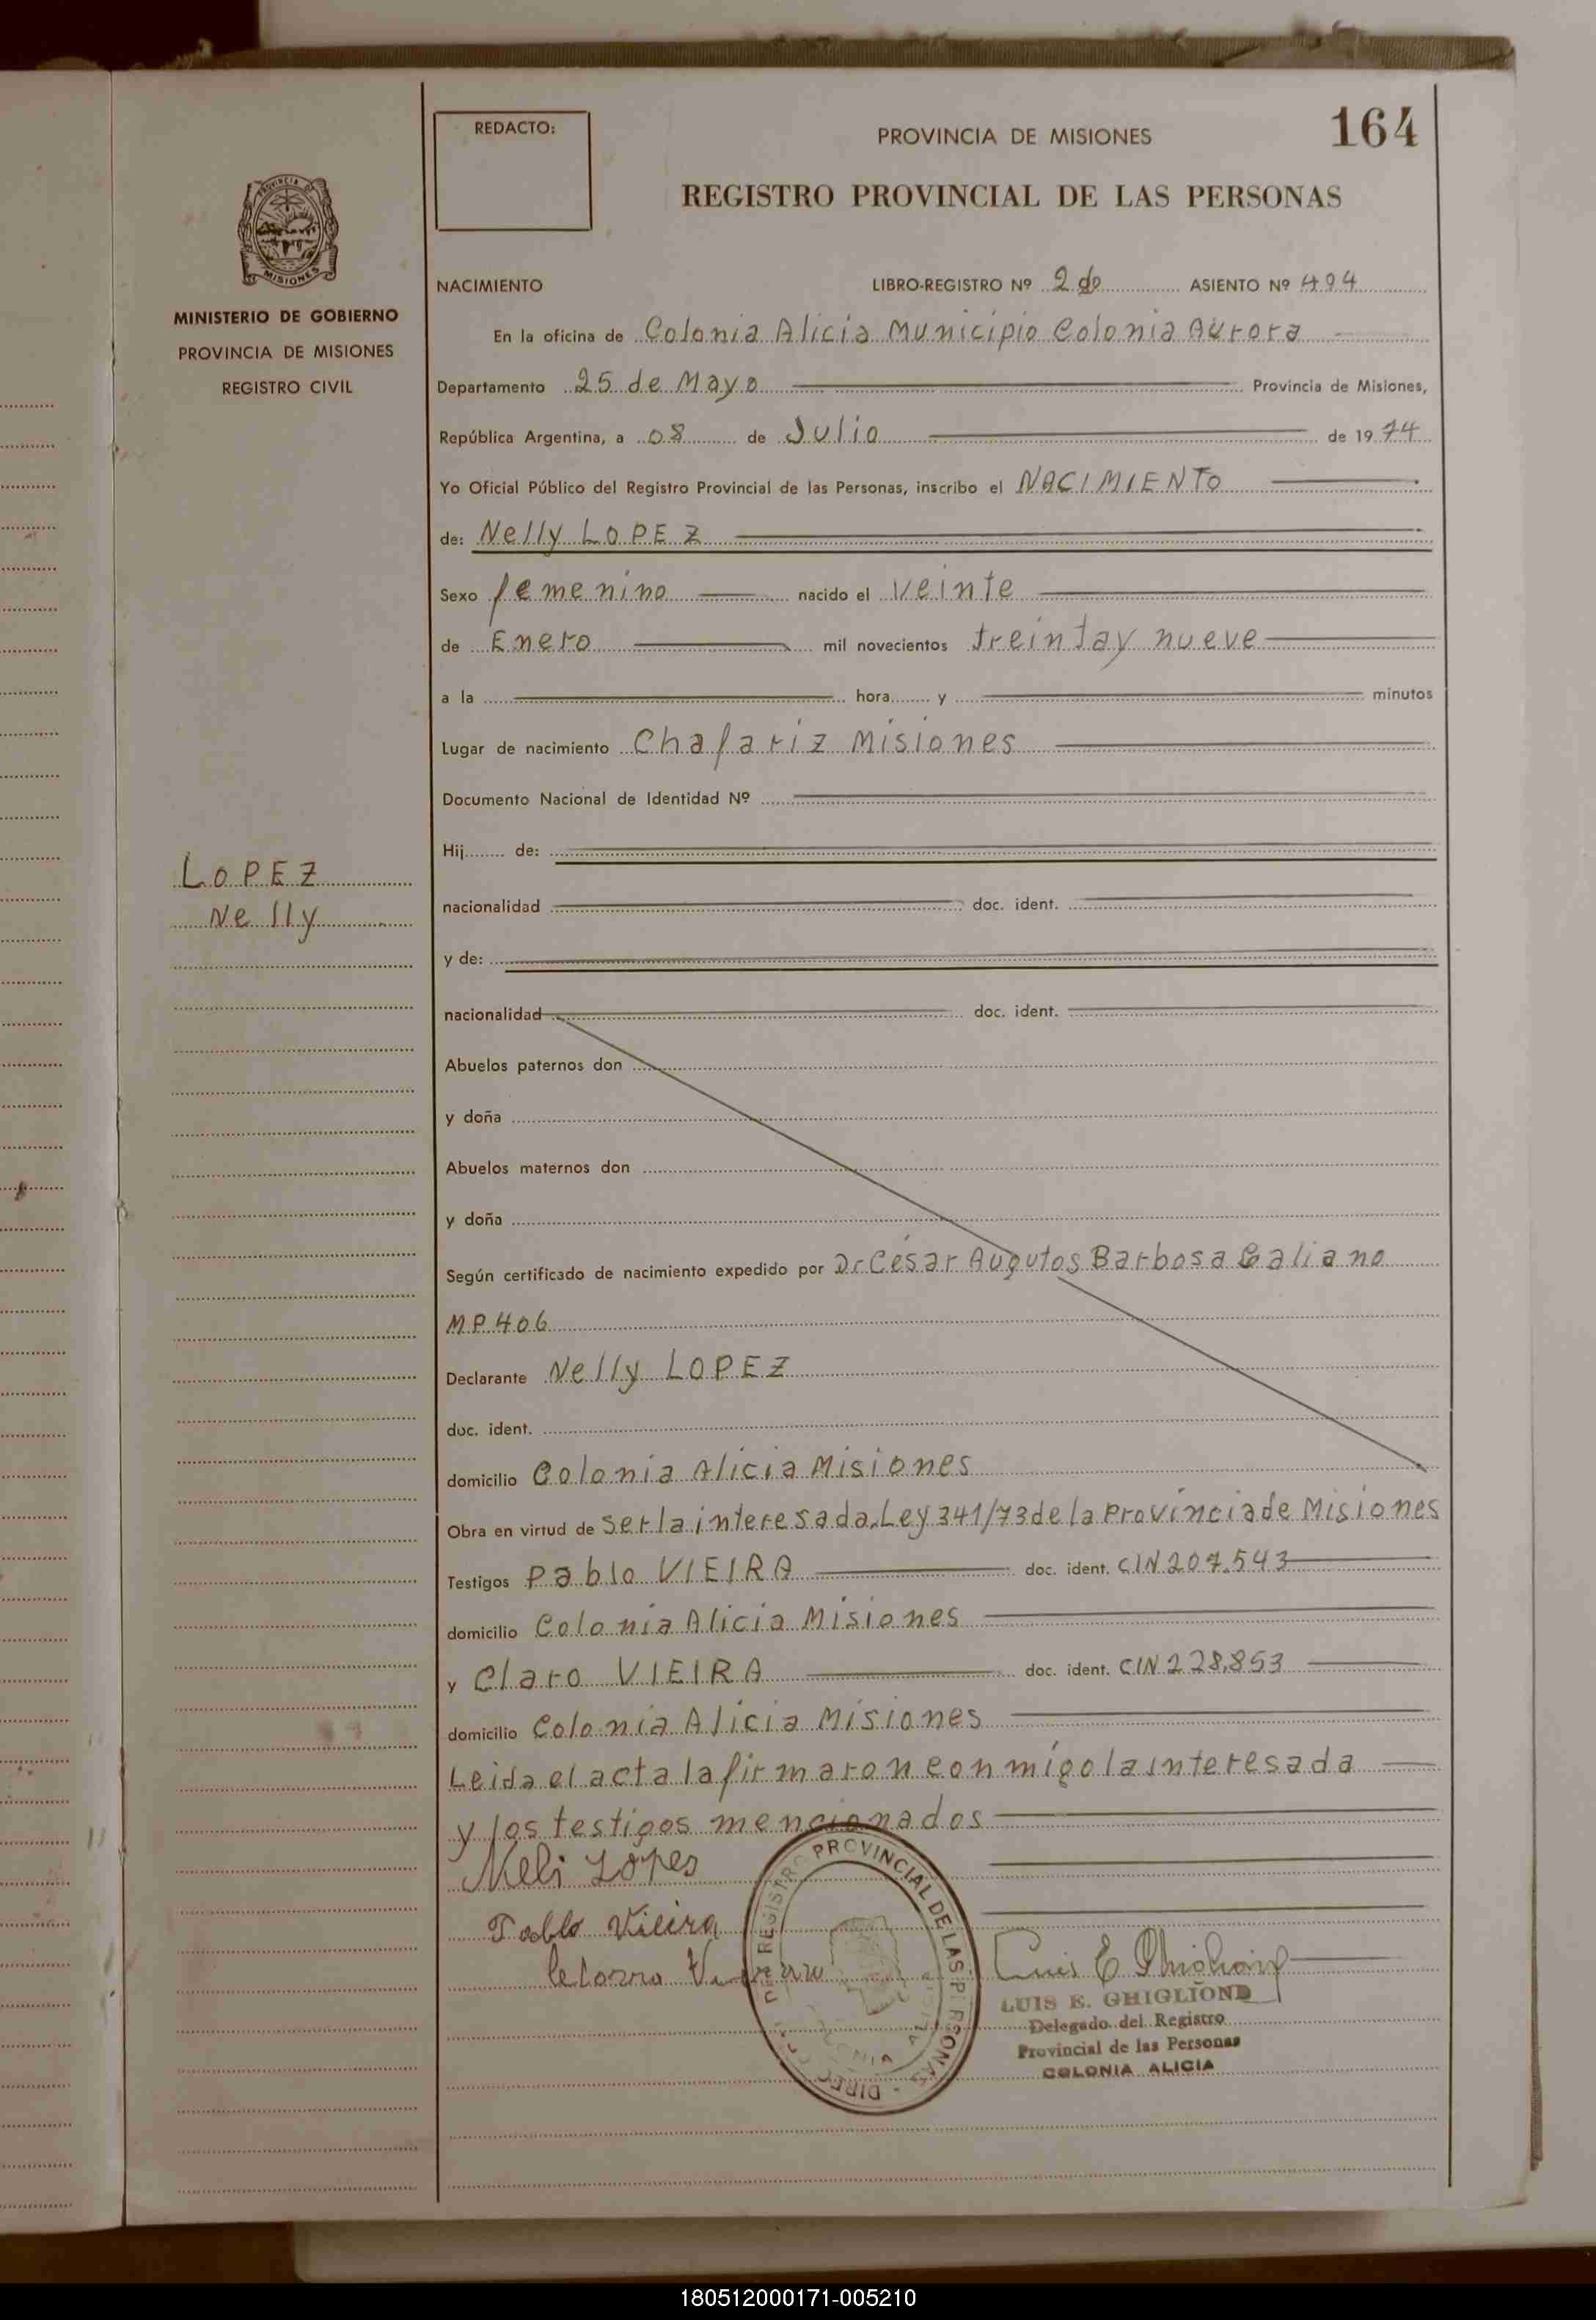 REDACTO:
PROVINCIA DE MISIONES
164
REGISTRO PROVINCIAL DE LAS PERSONAS
PROVINCIA DE
MISIONES
MINISTERIO DE GOBIERNO
PROVINCIA DE MISIONES
REGISTRO CIVIL
NACIMIENTO LIBRO-REGISTRO Nº 2do ASIENTO Nº 494
En la oficina de Colonia Alicia Municipio Colonia Aurora
Departamento 25 de Mayo Provincia de Misiones,
República Argentina, a 08 de Julio de 1974
Yo Oficial Público del Registro Provincial de las Personas, inscribo el NACIMIENTO
de: Nelly LOPEZ
Sexo femenino nacido el veinte
de Enero mil novecientos treintay nueve
a la hora y minutos
Lugar de nacimiento Chafariz Misiones
Documento Nacional de Identidad Nº
Hij de:
LOPEZ
Nelly
nacionalidad doc. ident.
y de:
nacionalidad doc. ident.
Abuelos paternos don
y doña
Abuelos maternos don
y doña
Según certificado de nacimiento expedido por Dr César Augutos Barbosa Galiano
MP.406
Declarante Nelly LOPEZ
doc. ident.
domicilio Colonia Alicia Misiones
Obra en virtud de ser la interesada, Ley 341/73 de la Provincia de Misiones
Testigos Pablo VIEIRA doc. ident. CIN 207.543
domicilio Colonia Alicia Misiones
y Claro VIEIRA doc. ident. CIN 228.853
domicilio Colonia Alicia Misiones
Leida el acta la firmaron conmigo la interesada
y los testigos mencionados
Neli Lopes
Pablo Vieira
Luis E Ghiglion
REGISTRO PROVINCIAL DE LAS PERSONAS
LUIS E. GHIGLIONE
Delegado del Registro
Provincial de las Personas
COLONIA ALICIA
180512000171-005210